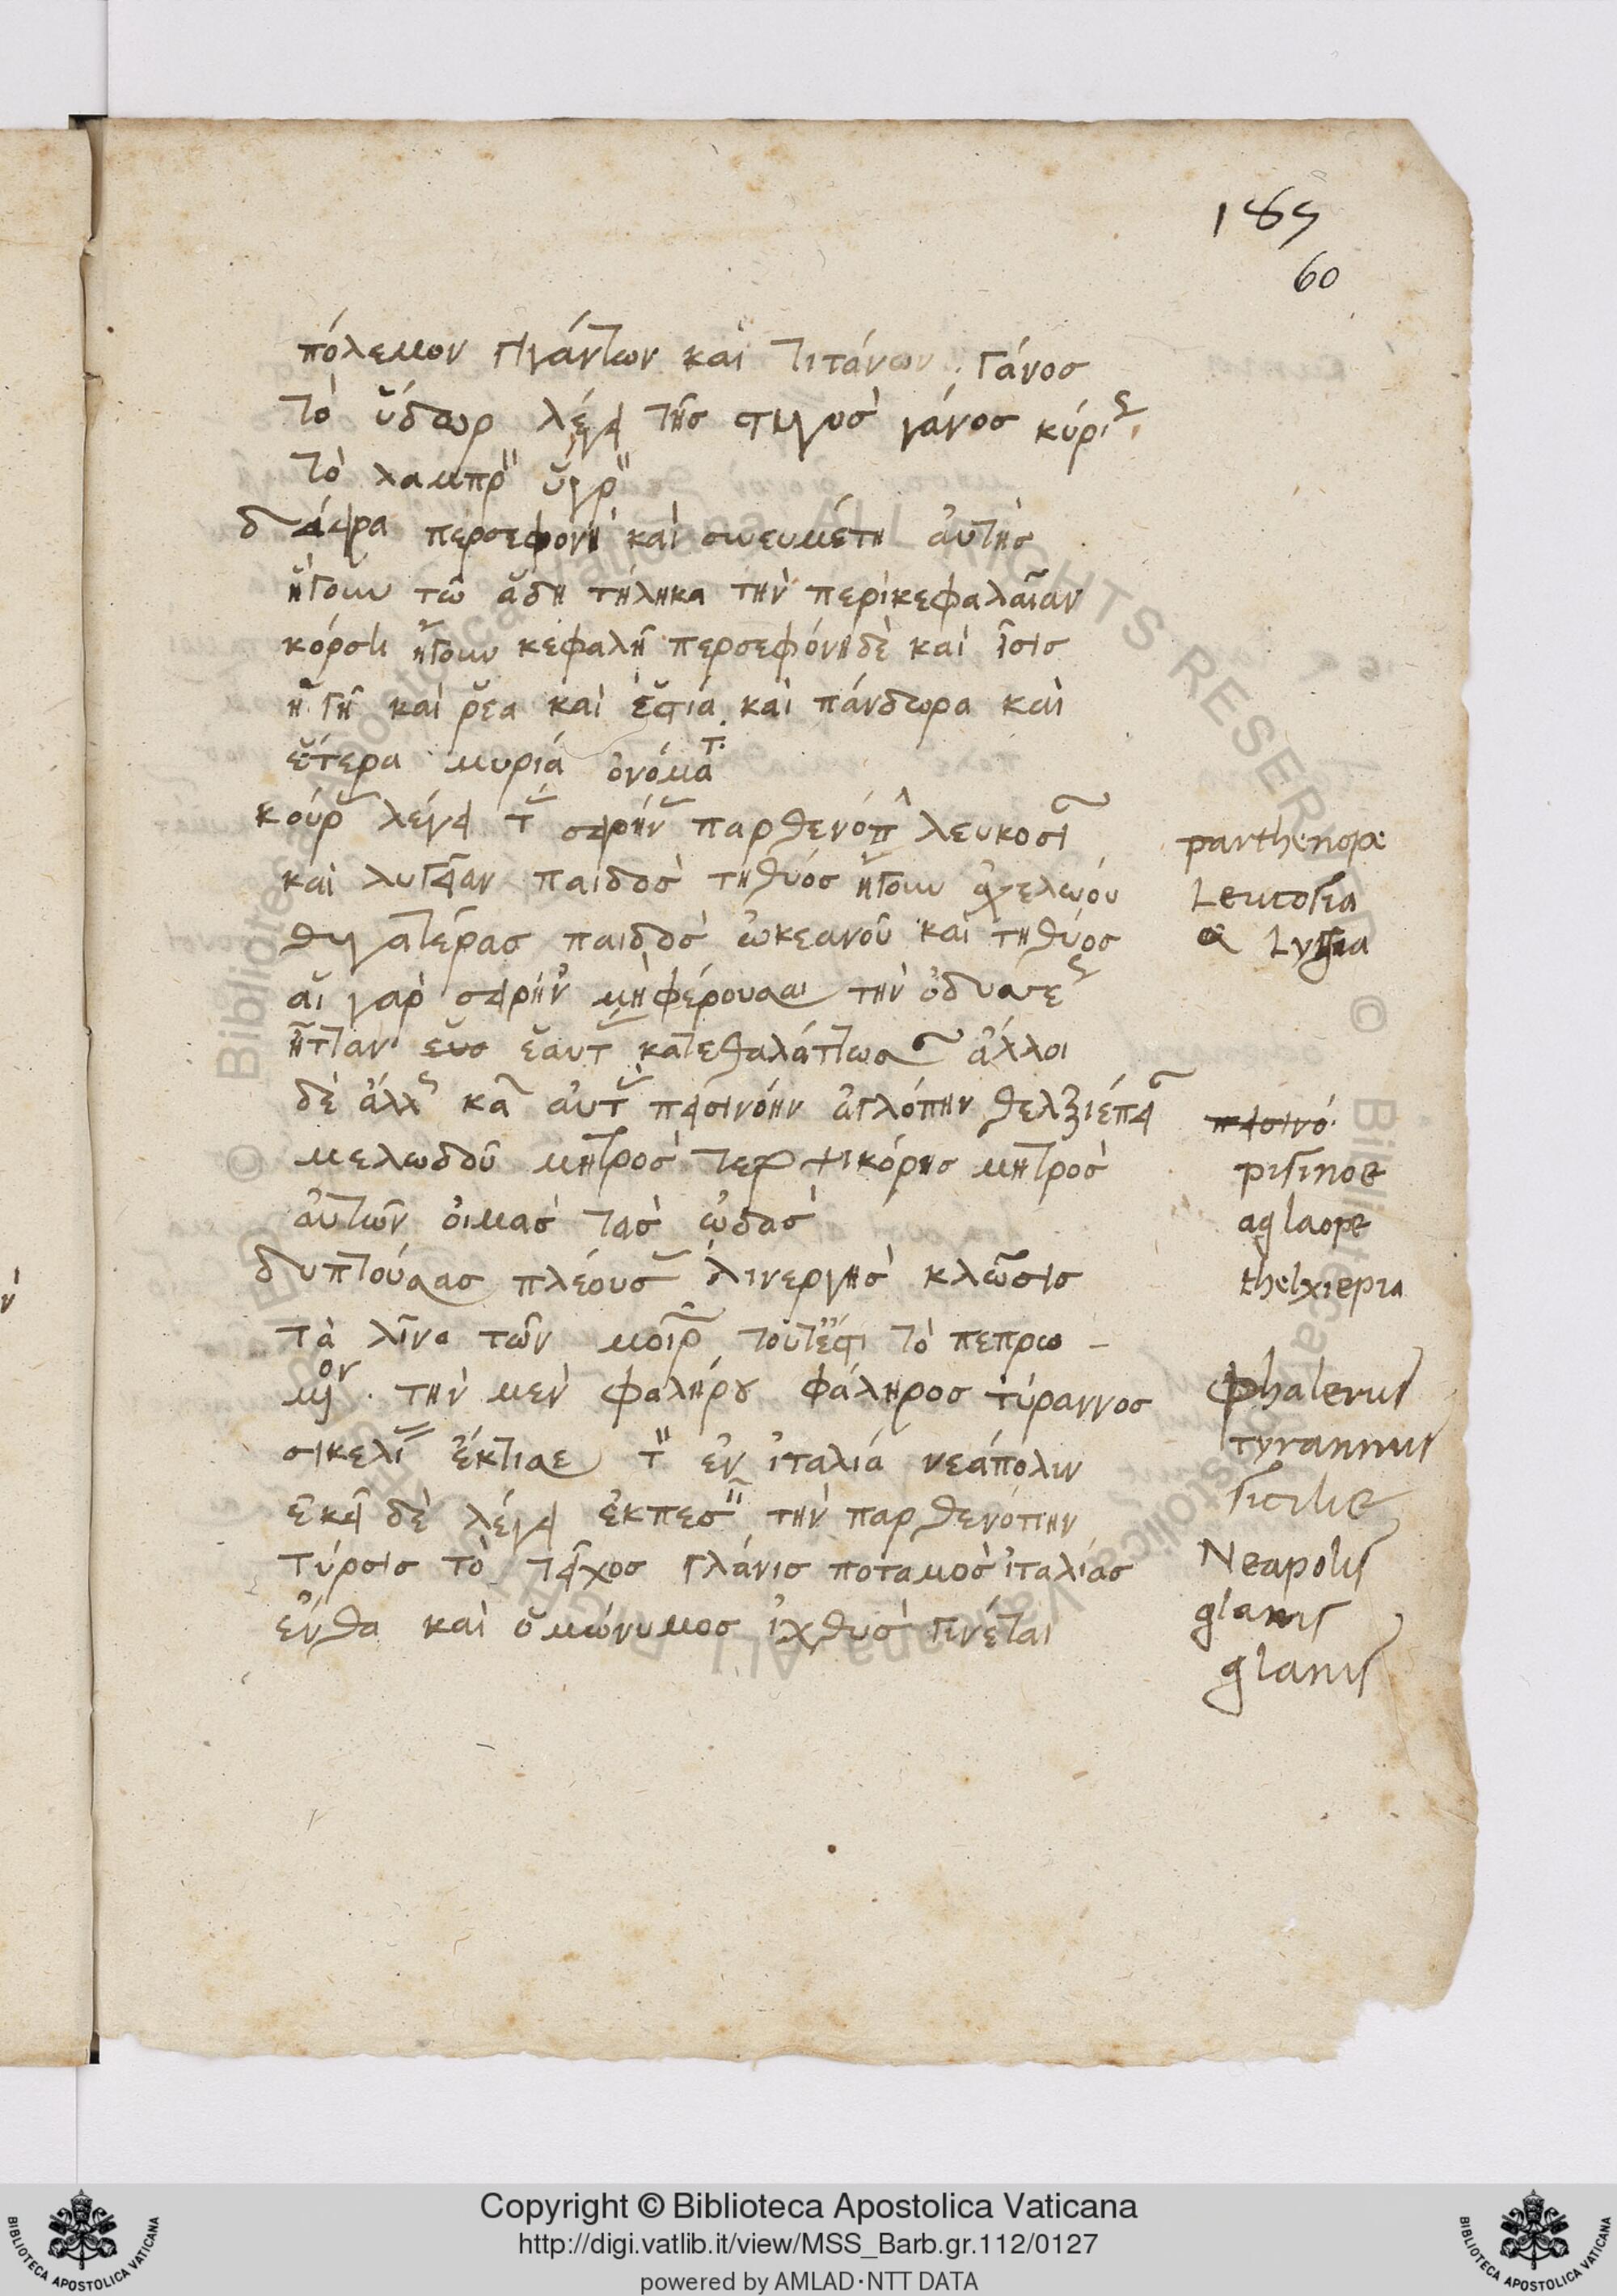 185
60
πόλεμον γιγάντων καὶ τιτάνων. γάνοσ
τὸ ὕδωρ λέγει τῆσ στυγυσ γάνοσ κύρι
τὸ λαμπρ ὑγρ
δάειρα περσεφόνη καὶ συνευνέτη αὐτῆσ
ἤγουν τῶ ἅδη πήληκα τὴν περικεφαλαίαν
κόρση ἤγουν κεφαλῆ περσεφόνη δὲ καὶ ἶσισ
ἡ γῆ καὶ ρέα καὶ ἑστία καὶ πάνδωρα καὶ
ἕτερα μυρία ὀνόματ
κούρ λέγει τ σειρήν παρθενόπ λευκοσί
καὶ λυγείαν παιδὸσ τηθύοσ ἤγουν ἀχελώου
θυγατέρασ παιδὸσ ὠκεανοῦ καὶ τηθύοσ
αἱ γαρ σειρήν μὴ φέρουσαι τὴν ὀδυσσε
ἧτταν ἑαυτ κατεθαλάττωσ ἄλλοι
δὲ ἀλλ κα αὐτ πεισινόην ἀγλόπην θελξιέπει
μελωδοῦ μητροσ τερψικόρησ μητροσ
αὐτῶν οἴμασ τὰσ ὠδασ
δυπτούσασ πλέουσ λινεργῆσ κλῶσισ
τὰ λῖνα τῶν μοιρ τουτέστι τὸ πεπρω-
μένον. τὴν μὲν φαλήρου φάληροσ τύραννοσ
σικελί ἔκτισε τ ἐν ἰταλία νεάπολιν
ἐκεῖ δὲ λέγει ἐκπεσ τὴν παρθενόπην
τύρσισ τὸ τεῖχοσ γλάνισ ποταμὸσ ἰταλίασ
ἔνθα καὶ ὁμώνυμοσ ἰχθυσ γινέται
parthenope
Leucosia
& Lygia
πεισινό
pisinoe
aglaope
thelxiepia
phalerus
tyrannus
sicilie
Neapolis
glanis
glanis
Copyright © Biblioteca Apostolica Vaticana
http://digi.vatlib.it/view/MSS_Barb.gr.112/0127
powered by AMLAD·NTT DATA
BIBLIOTECA APOSTOLICA VATICANA
BIBLIOTECA APOSTOLICA VATICANA
© Biblioteca Apostolica Vaticana ALL RIGHTS RESERVED